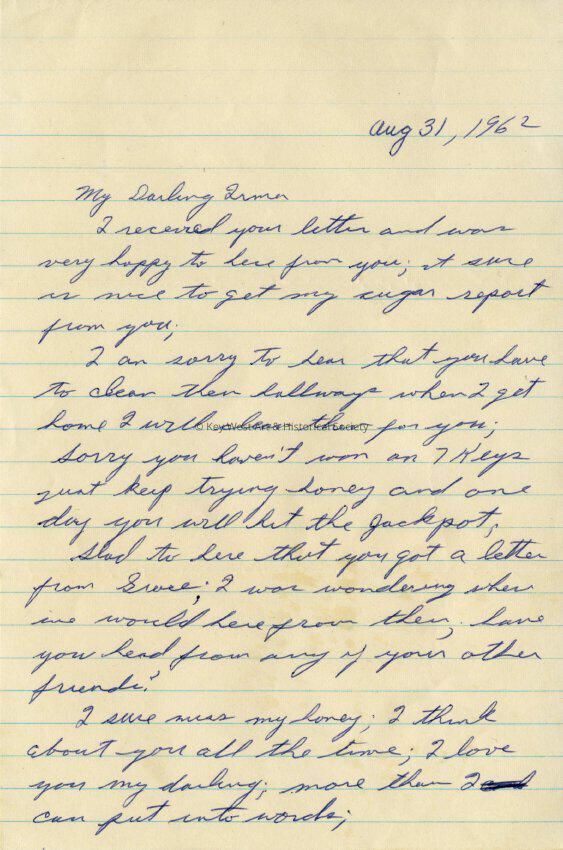 Aug 31, 1962
My Darling Irma
I received your letter and was
very happy to here from you; it sure
is nice to get my sugar report
from you;
I am sorry to hear that you have
to clean then hallways when I get
home I will clean them for you;
© Key West Art & Historical Society
Sorry you haven't won on 7 Keys
just keep trying honey and one
day you will hit the Jackpot;
Glad to here that you got a letter
from Grace; I was wondering when
we would here from them; have
you head from any of your other
friends?
I sure miss my honey; I think
about you all the time; I love
you my darling; more than I
can put into words;